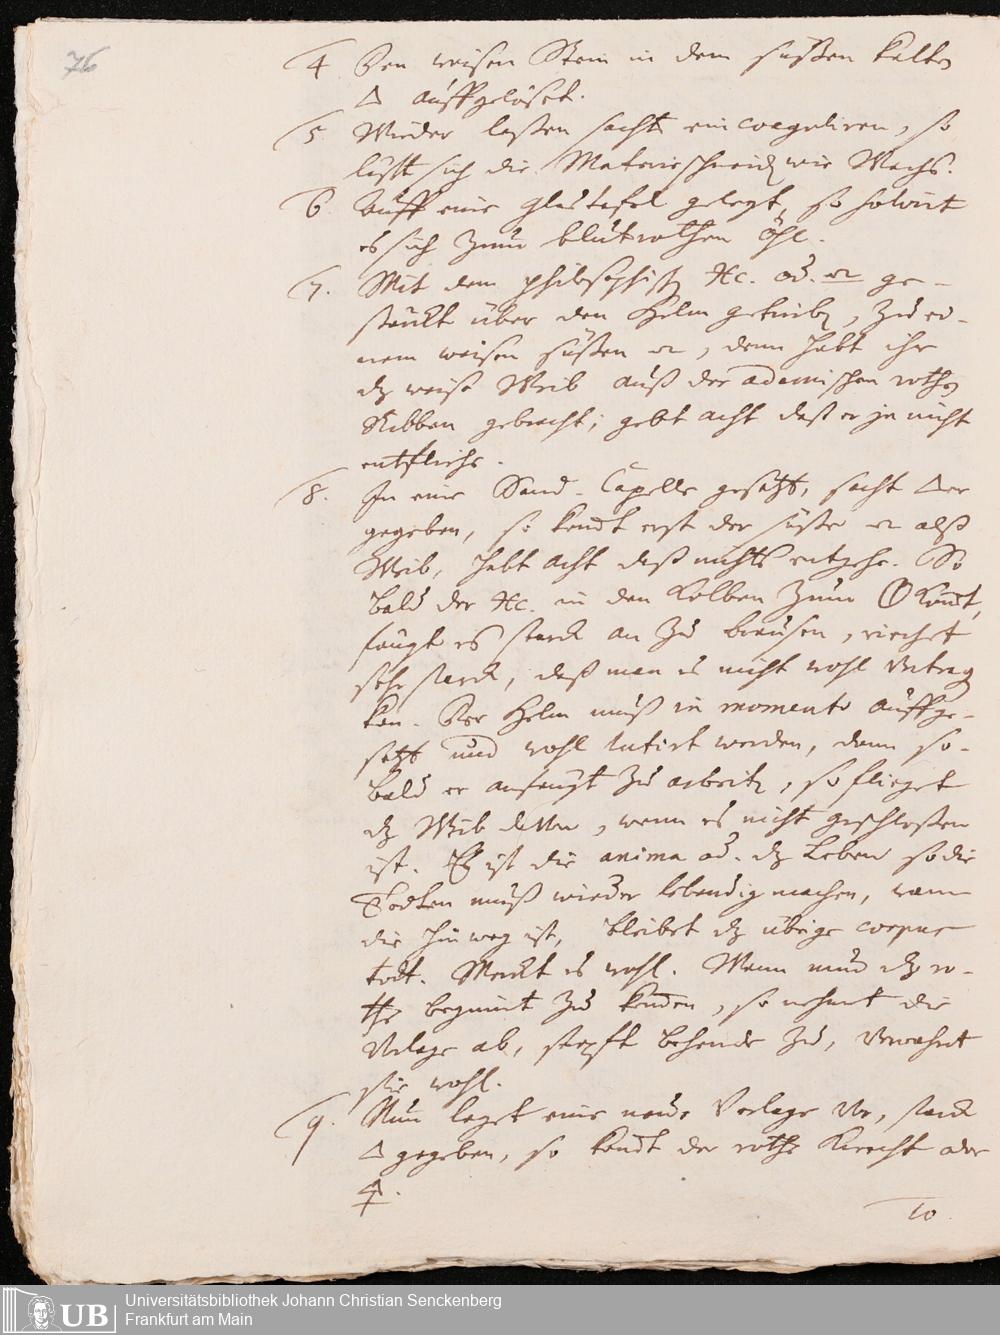 76
4 Den weisen Stein in dem süßen kalten
△ auffgelöset.
5. Wieder laßen sacht ein coaguliren, so
läßt sich die Materie schneiden wie Wachs.
6 Auff eine Glastafel gelegt, so solvirt
es sich zum blutrothen öhl.
7. Mit dem philosophischen od. ge-
stärckt über den Helm getrieben, zu ei-
nem weisen süßen, denn habt ihr
dz weiße Weib auß der adamischen rothen
Ribben gebracht; gebt acht daß er ja nicht
entfliehe.
8. In eine Sand-Capelle gesetzt, sacht △er
gegeben, so komt erst der süße alß
Weib, habt acht daß nichts entgehe. So
bald der in den Kolben zum komt,
fängt es starck an zu brausen, riechet
sehr starck, daß man es nicht wohl vertragen
kan. Der Helm muß in momento auffge-
setzt und wohl lutirt werden, denn so-
bald er anfängt zu arbeiten, so flieget
dz Weib davon, wenn es nicht geschloßen
ist. Es ist die anima od. dz Leben so die
Todten muß wieder lebendig machen, wann
die hinweg ist, bleibet dz übrige corpus
todt. Merckt es wohl. Wenn nun dz ro-
the beginnt zu komen, so nehmt die
Vorlage ab, stopft behende zu, verwahrt
sie wohl.
9. Nun leget eine neue Vorlage vor, starck
△ gegeben, so komt der rothe Knecht oder
🜍.
10
UB
Universitätsbibliothek Johann Christian Senckenberg
Frankfurt am Main